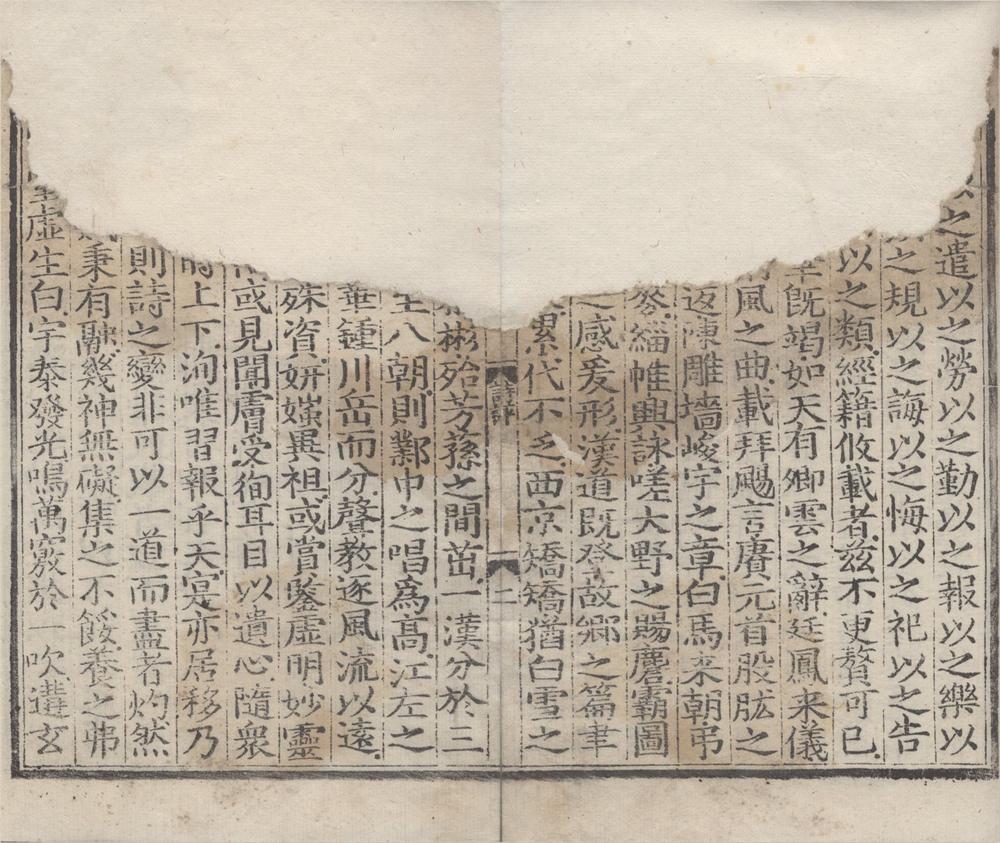 之遣以之勞以之勤以之報以之樂以
之規以之誨以之悔以之祀以之告
以之類.經籍攸載者.茲不更贅可已.
既竭如天有卿雲之辭.廷鳳来儀
風之曲.載拜颺言.賡元首股肱之
返.陳雕墻峻宇之章.白馬来朝.弔
麥.緇帷興詠.嗟大野之賜麐.霸圖
之感.爰形.漢道既登.故鄉之篇聿
累代不乏.西京矯矯.猶白雪之
彬.殆芳蓀之間茁.一漢分於三
八朝.則鄴中之唱爲高.江左之
華鍾川岳而分.聲教逐風流以遠.
殊資.妍媸異祖.或嘗鑒虛明妙靈
或見聞膚受.徇耳目以遺心.隨衆
上下.洵唯習報乎天.寔亦居移乃
則詩之變.非可以一道而盡者.灼然
秉有融.幾神無礙.集之不餒.養之弗
虛生白.宇泰發光.鳴萬竅於一吹.遘玄
詩評
二